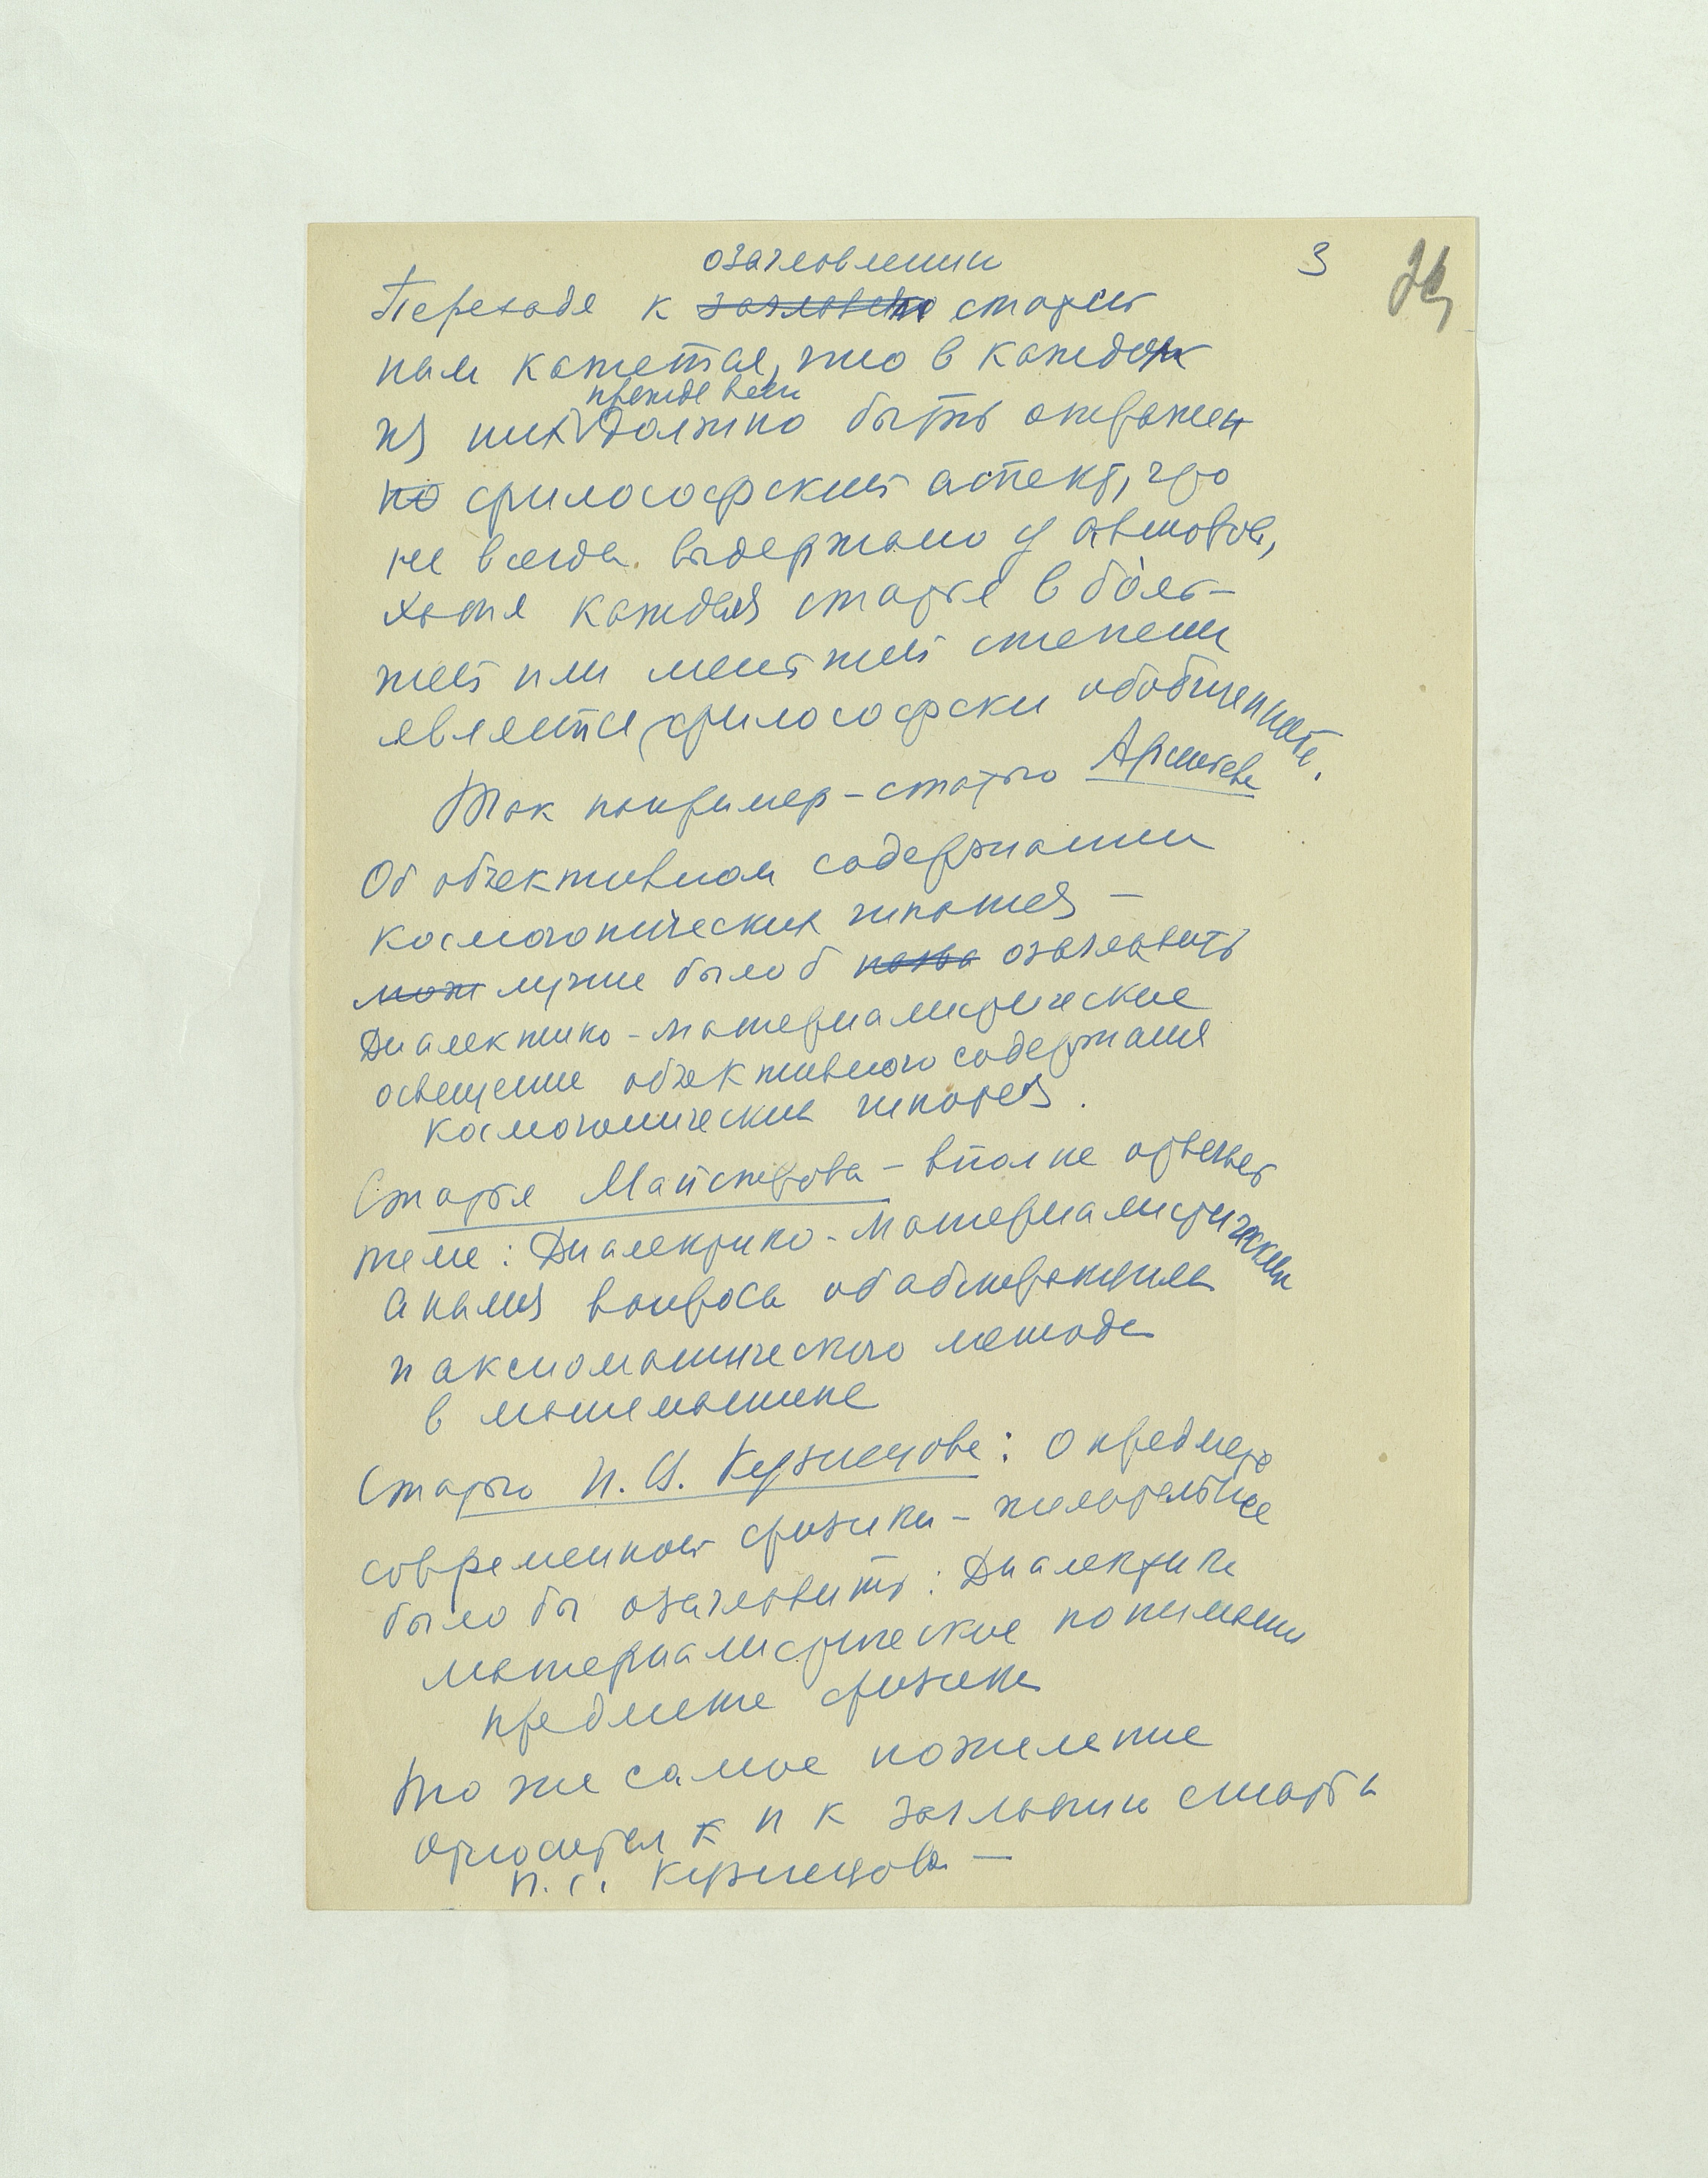 озаглавлении
3
Переходя к заглавию статей
нам кажется, что в каждой
прежде всего
из них должно быть отражен
но философский аспект, что
не всегда выдержано у авторов,
хотя каждая статья в боль-
шей или меньшей степени
является философски обобщенной.
Так например – статью Арсеньева
Об объективном содержании
космогонических гипотез –
мож лучше было б назва озаглавить
Диалектико-материалистические
освещение объективного содержания
космогонических гипотез.
Статья Майстрова – вполне отвечает
теме: Диалектико-материалистический
анализ вопроса об абстракциях
и аксиоматического метода
в математике
Статью И. В. Кузнецова: О предмете
современной физики – желательнее
было бы озаглавить: Диалектико
материалистическое понимание
предмета физики
То же самое пожелание
относится к и к заглавию статьи
И. С. Кузнецова –